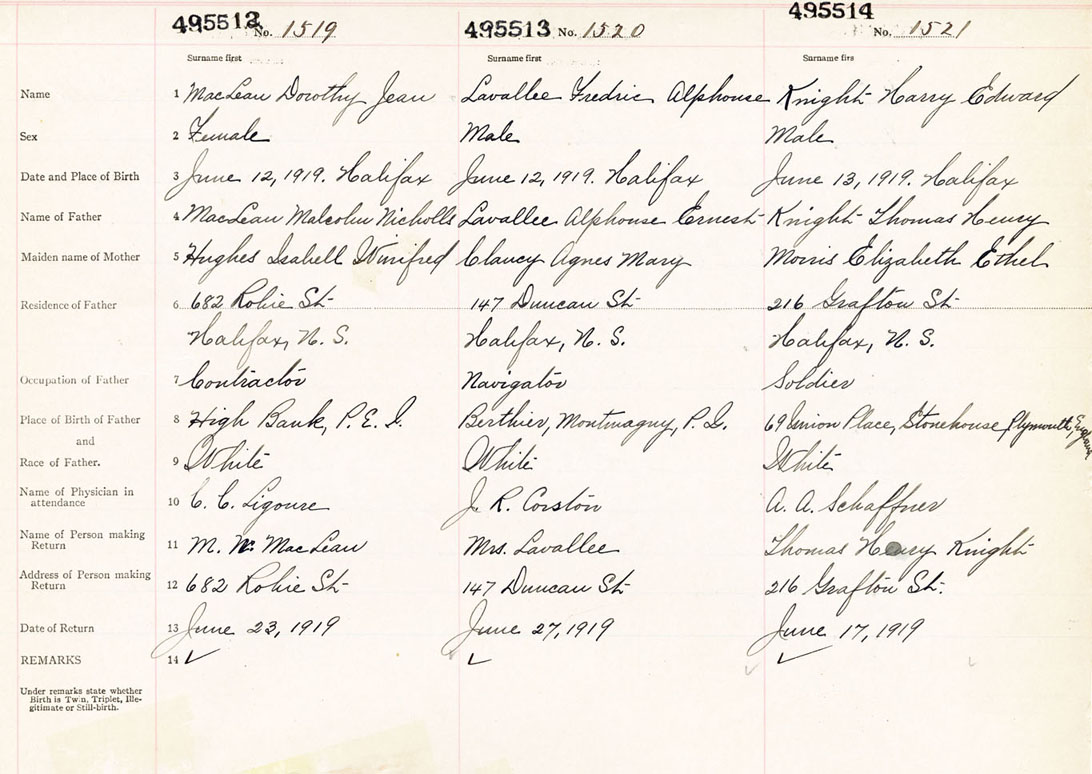 495512 No. 1519 495513 No. 1520 495514 No. 1521
Surname first Surname first Surname firs
Name 1 MacLean Dorothy Jean Lavallee Fredric Alphonse Knight Harry Edward
Sex 2 Female Male Male
Date and Place of Birth 3 June 12, 1919. Halifax June 12, 1919. Halifax June 13, 1919. Halifax
Name of Father 4 MacLean Malcolm Nicholls Lavallee Alphonse Ernest Knight Thomas Henry
Maiden name of Mother 5 Hughes Isabell Winifred Clancy Agnes Mary Morris Elizabeth Ethel
Residence of Father 6 682 Robie St 147 Duncan St 216 Grafton St
Halifax, N. S. Halifax, N. S. Halifax, N. S.
Occupation of Father 7 Contractor Navigator Soldier
Place of Birth of Father 8 High Bank, P. E. I. Berthier, Montmagny, P. Q. 69 Union Place, Stonehouse, Plymouth, England
and
Race of Father. 9 White White White
Name of Physician in attendance 10 C. C. Ligoure J. R. Corston A. A. Schaffner
Name of Person making Return 11 M. N. MacLean Mrs. Lavallee Thomas Henry Knight
Address of Person making Return 12 682 Robie St 147 Duncan St 216 Grafton St.
Date of Return 13 June 23, 1919 June 27, 1919 June 17, 1919
REMARKS 14 ✓ ✓ ✓
Under remarks state whether
Birth is Twin, Triplet, Ille-
gitimate or Still-birth.